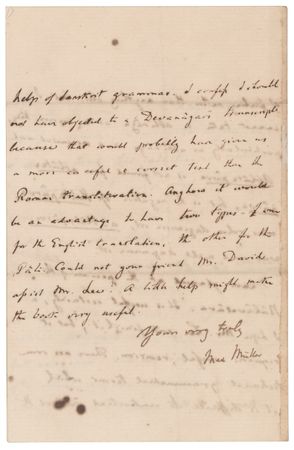 help of Sanskrit grammar. I confess I should
not have objected to a Devanâgari transcript
because that would probably have given us
a more careful & correct text than the
Roman transliteration. Anyhow it would
be an advantage to have two types. I one
for the English translation, the other for the
Pâli. Could not your friend Mr. David
assist Mr. Lee? A little help might make
the book very useful.
Yours very truly
Max Müller